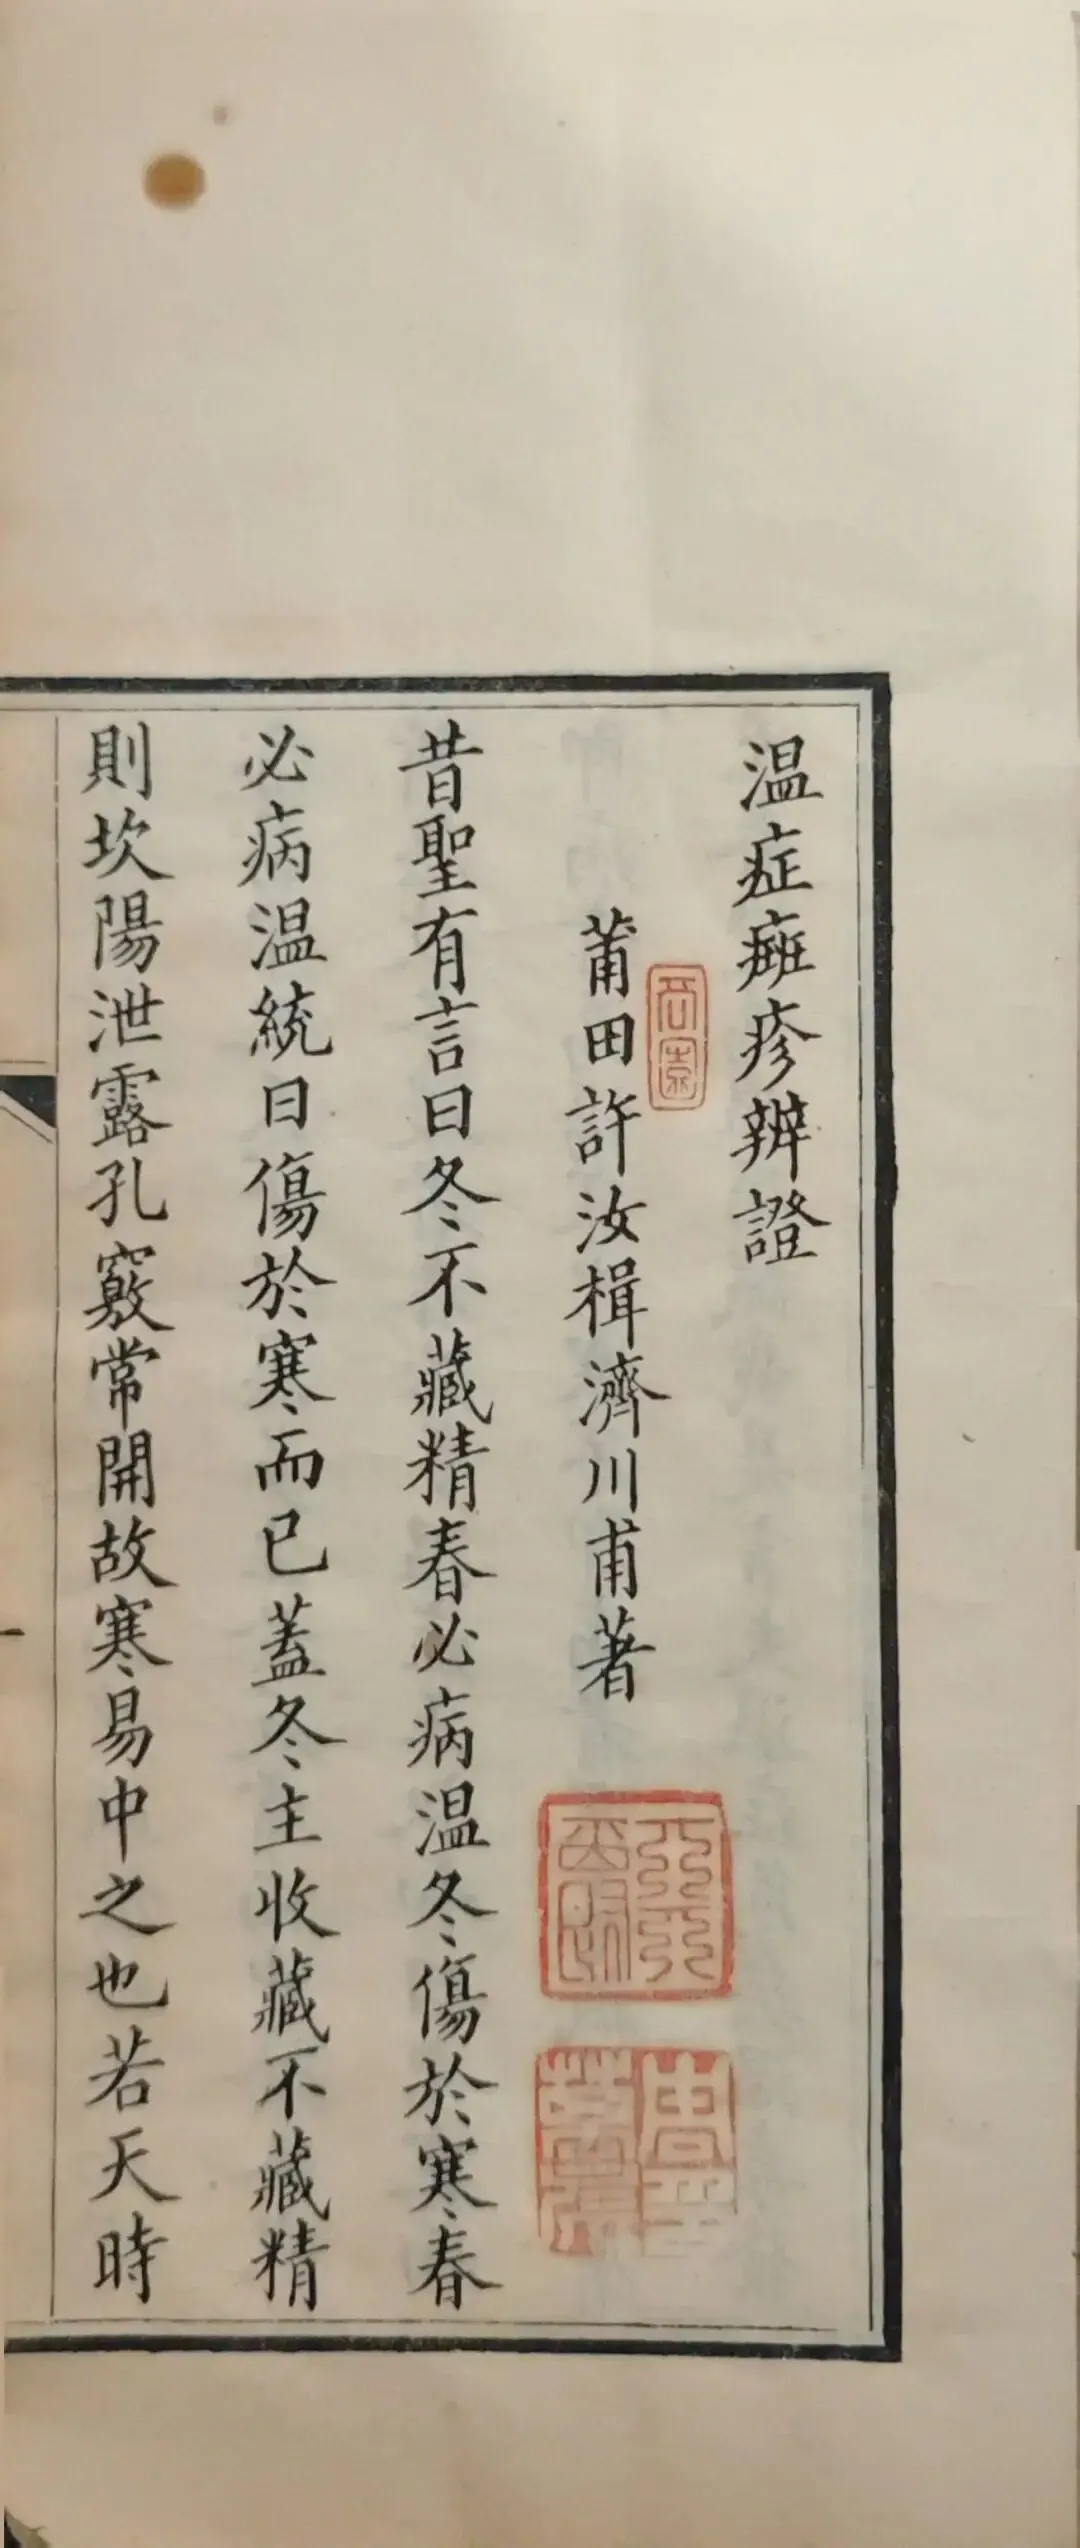 温症癍疹辨證
莆田許汝楫濟川甫著
昔聖有言曰冬不藏精春必病温冬傷於寒春
必病温統曰傷於寒而已蓋冬主收藏不藏精
則坎陽泄露孔竅常開故寒易中之也若天時